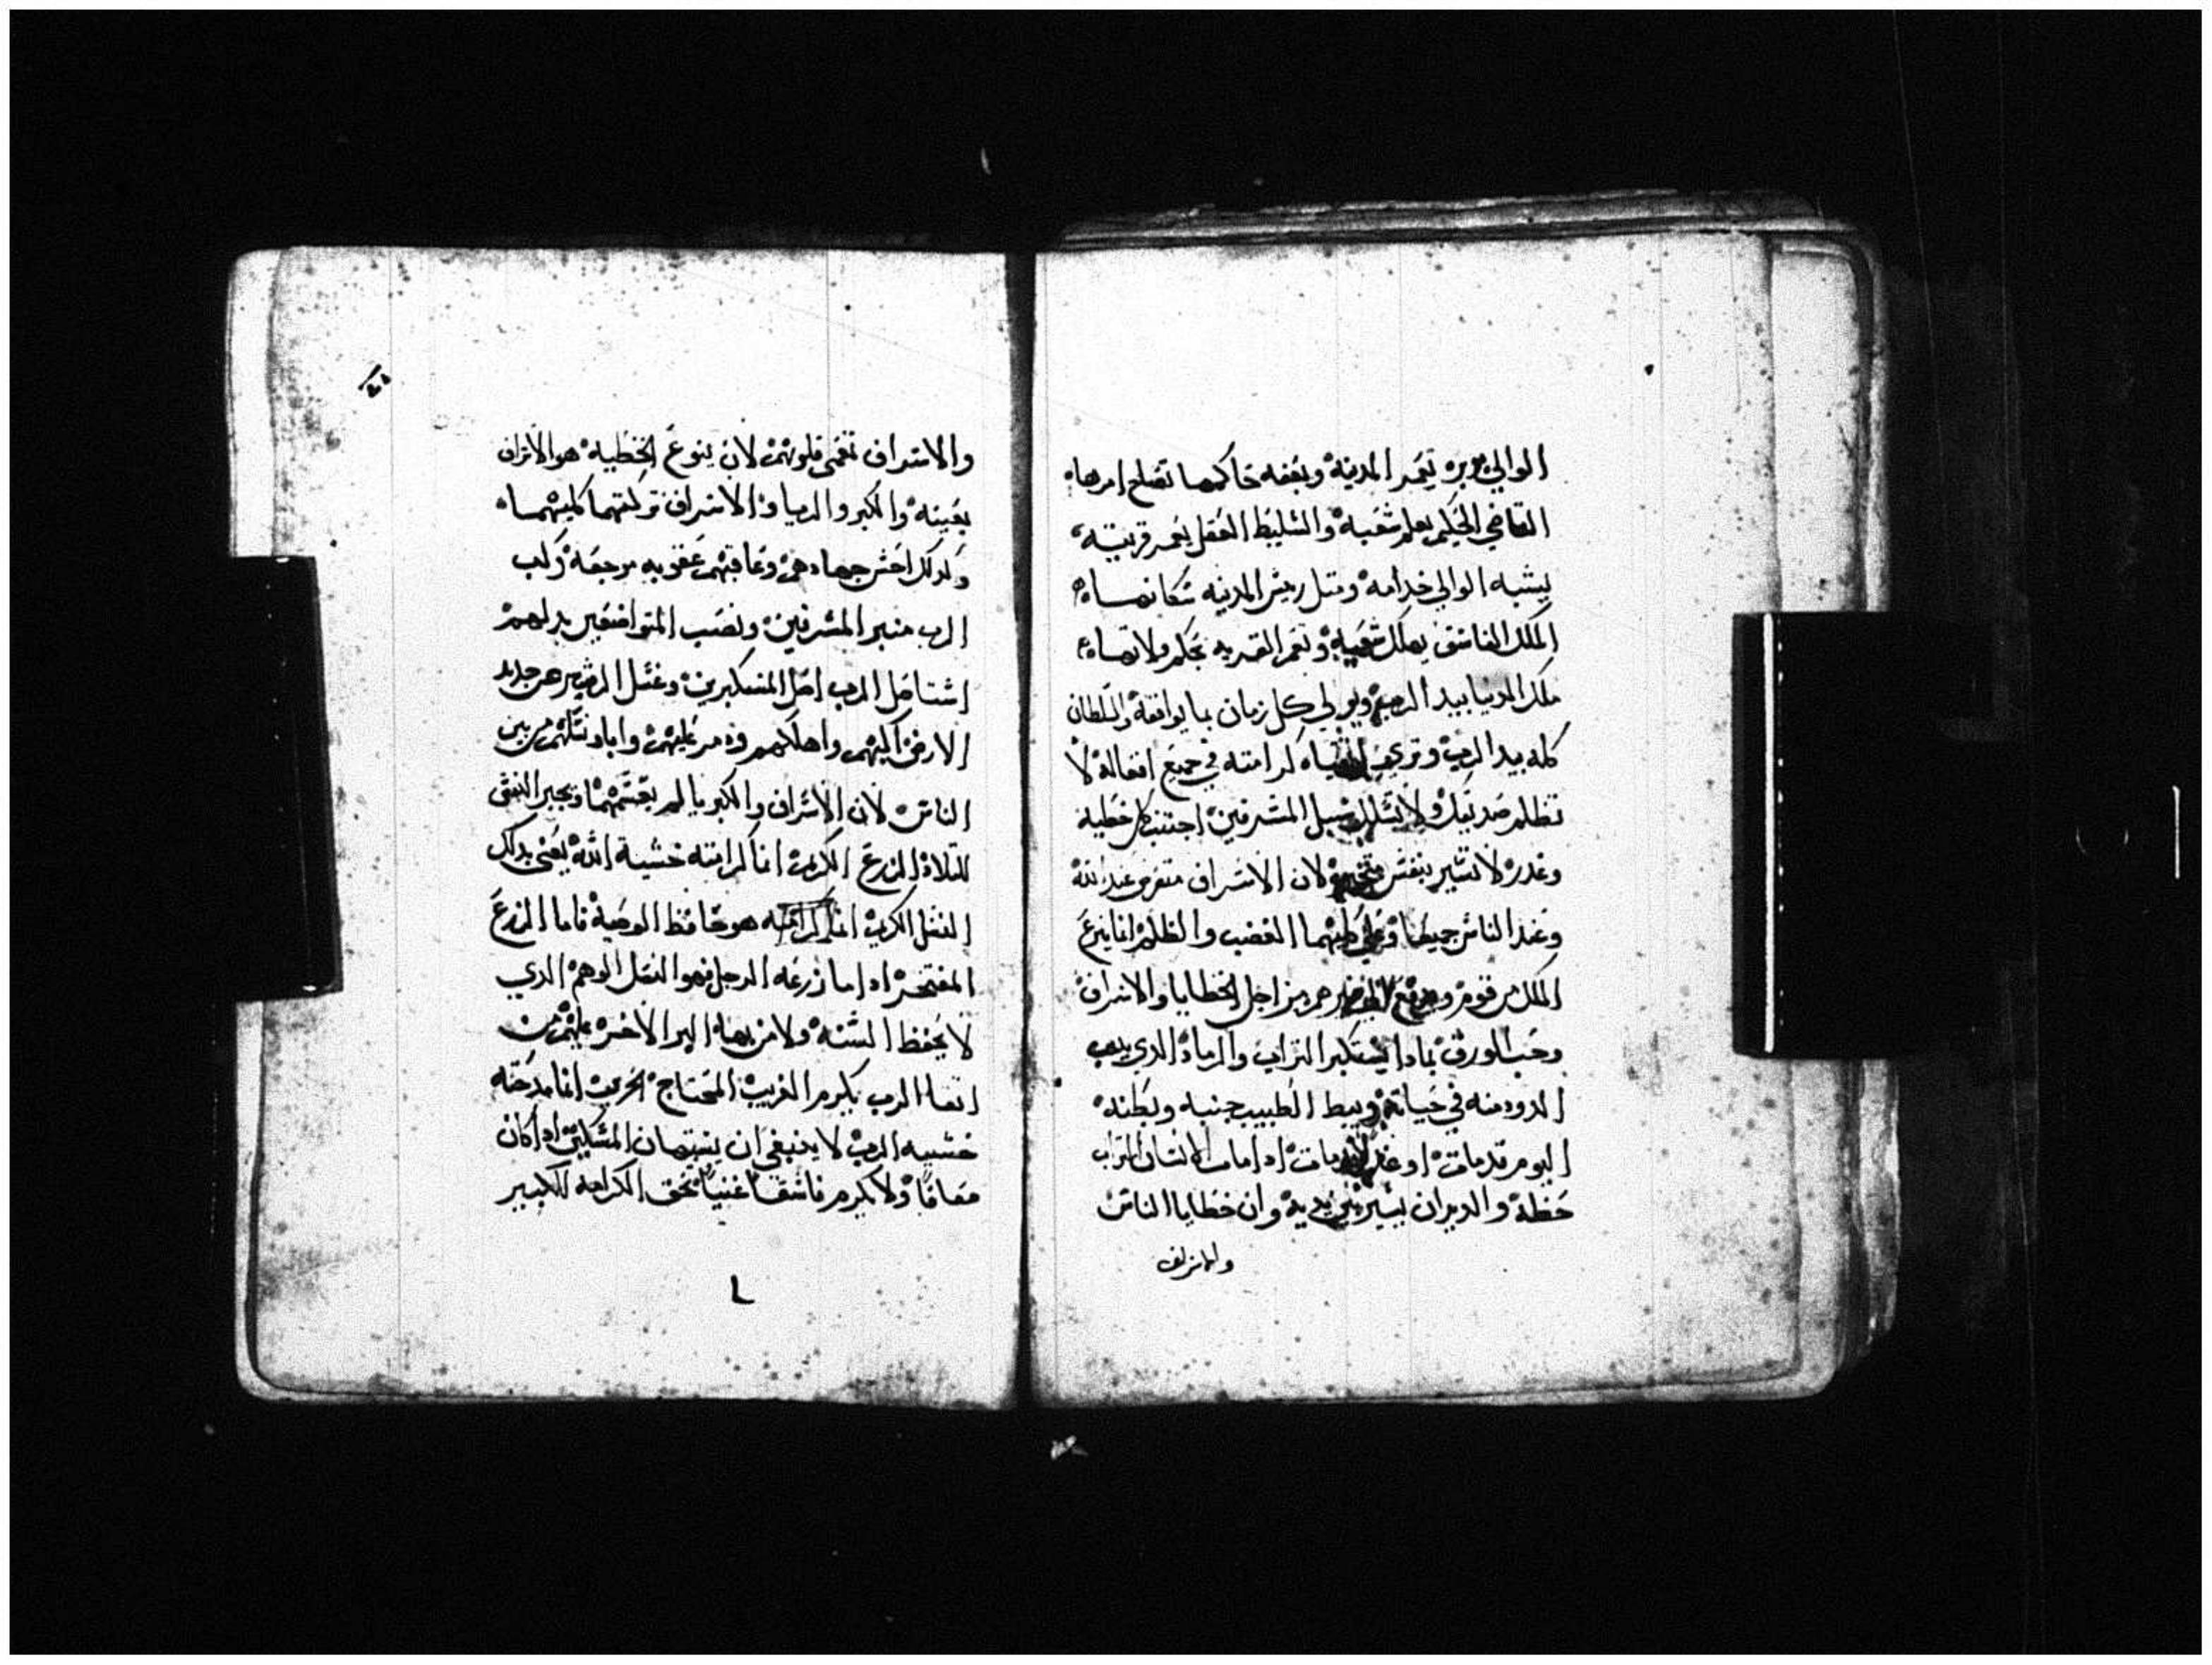 الوالي بره يعمر المدينة وبفقه حاكمها تصلح امرها
القاضي الحكيم يعلم شعبه والسليط العقل يعمر قريته
يشبه الوالي خدامه ومتل ريس المدينه سكانها
الملك الفاسق يهلك شعبه وتعمر القريه بحكم ولاتها
ملك الدنيا بيد الرب ويولي كل زمان بما يوافقه والسلطان
كله بيد الرب وتري كرامته في جميع افعاله لا
تظلم صديقك ولا تسلك سبيل المسرفين اجتنب كل خطية
وغدر لا تسير بنفس لان الاسراف متفرض عند الله
وعند الناس جميعا وعلي كليهما الغضب والظلم انما ينزع
الملك من قوم من اجل الخطايا والاسراف
وحب الورق بمادا يستكبر التراب والرماد الدي يدب
الدود منه في حياته ويبط الطبيب جنبه وبطنه
اليوم قد مات او غد مات ادا مات الانسان التراب
حظه والديدان وان خطايا الناس
والاسراف
والاسراف تعمي قلوبهم لان ينوع الخطية هو الاسراف
بعينه والكبر والريا والاسراف تركتهما كليتهما
ولدلك احش جهادهم وعاقبتهم عقوبه مرجعه وكب
الرب منبر المسرفين ونصب المتواضعين بدلهم
اشتاصل الرب اصل المستكبرين وغسل الرب من جديد
الارض اليهم واهلكهم ودمر عليهم واباد نسلهم من بين
الناس لان الاسراف والكبريا لم يقسمهما ويجبر النفق
للتلاد الزرع الكريم انما كرامته خشية الله يعني بدلك
النسل الكريم انما كرامته هو حافظ الوصية فاما الزرع
المفتخر ادا ما زرعه الرجل فهو النسل الوهم الدي
لا يحفظ السنه ولا من بها البر الاخر عليهم من
اتقا الرب يكرم الغريب المحتاج الحريب انما مدحته
خشيه الرب لا ينبغي ان يستهان المسكين ادا كان
معافا ولا يكرم فاسقا غنيا بحق الكرامه للكبير